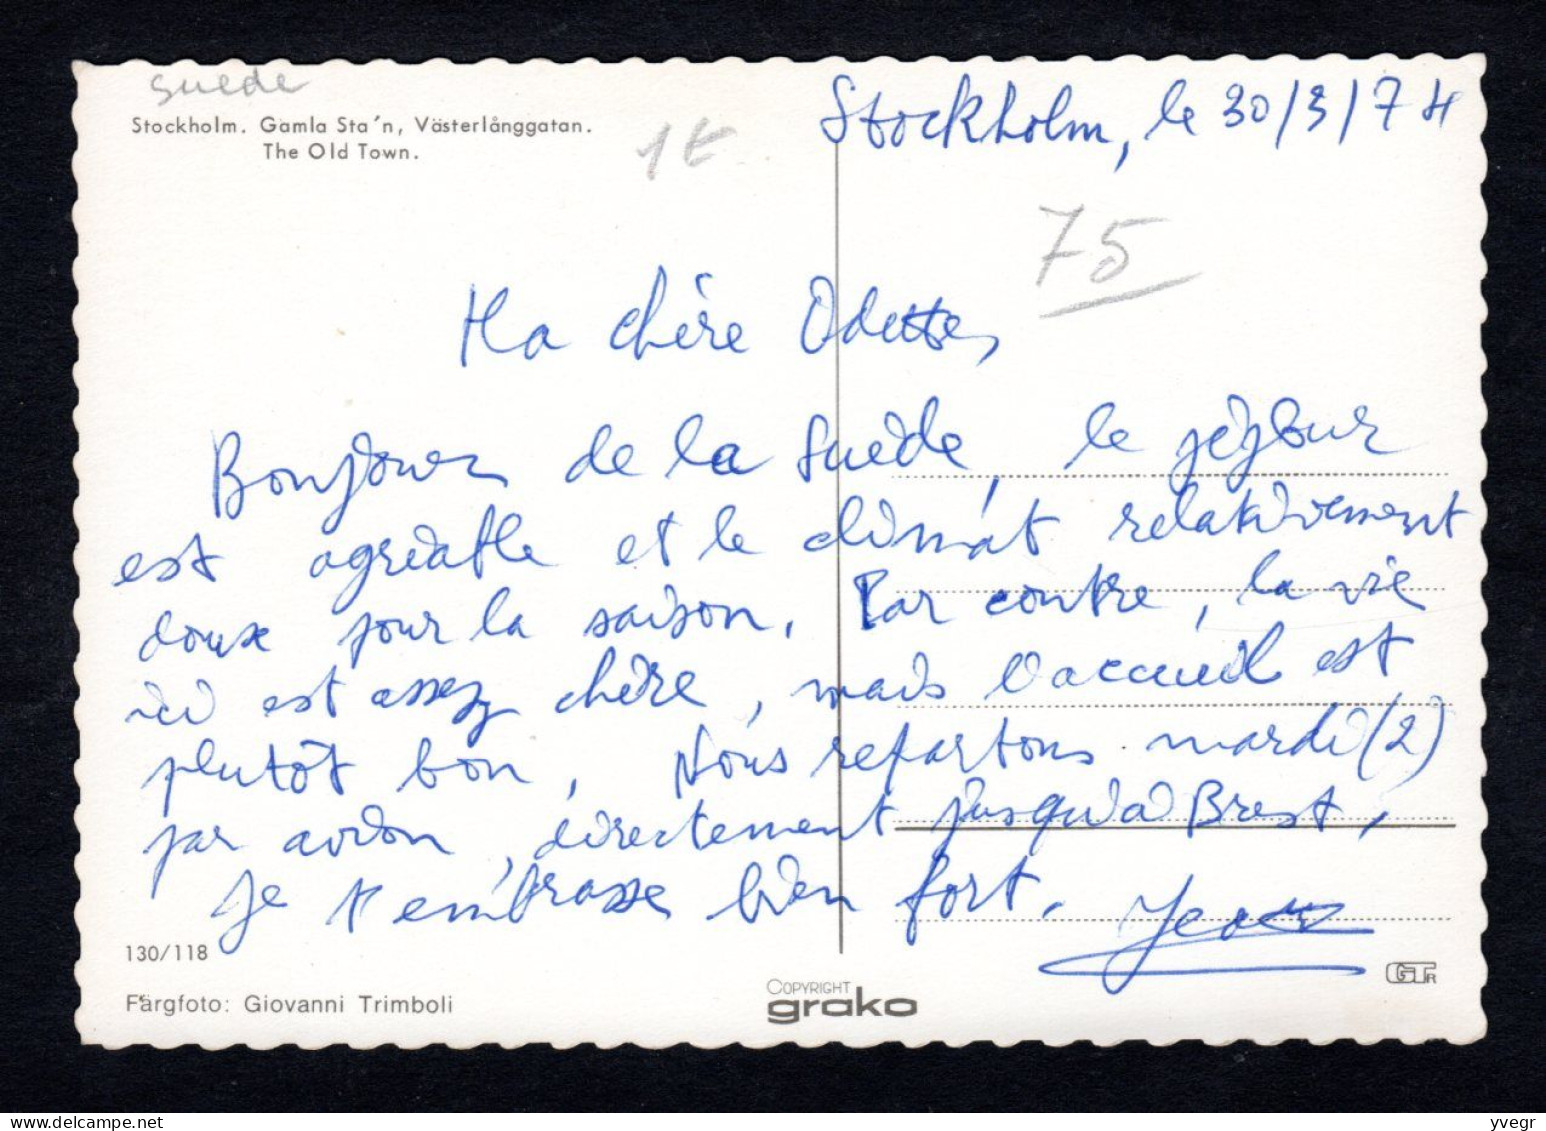 suede
Stockholm. Gamla Sta'n, Västerlånggatan.
The Old Town.
1€
Stockholm, le 30/3/74
75
Ma chère Odette,
Bonjour de la Suède, le séjour
est agréable et le climat relativement
doux pour la saison. Par contre, la vie
ici est assez chère, mais l'accueil est
plutôt bon. Nous repartons mardi (2)
par avion, directement jusqu'à Brest,
Je t'embrasse bien fort. Jean
130/118
Färgfoto: Giovanni Trimboli
COPYRIGHT
grako
GTR
yvegr @ delcampe.net